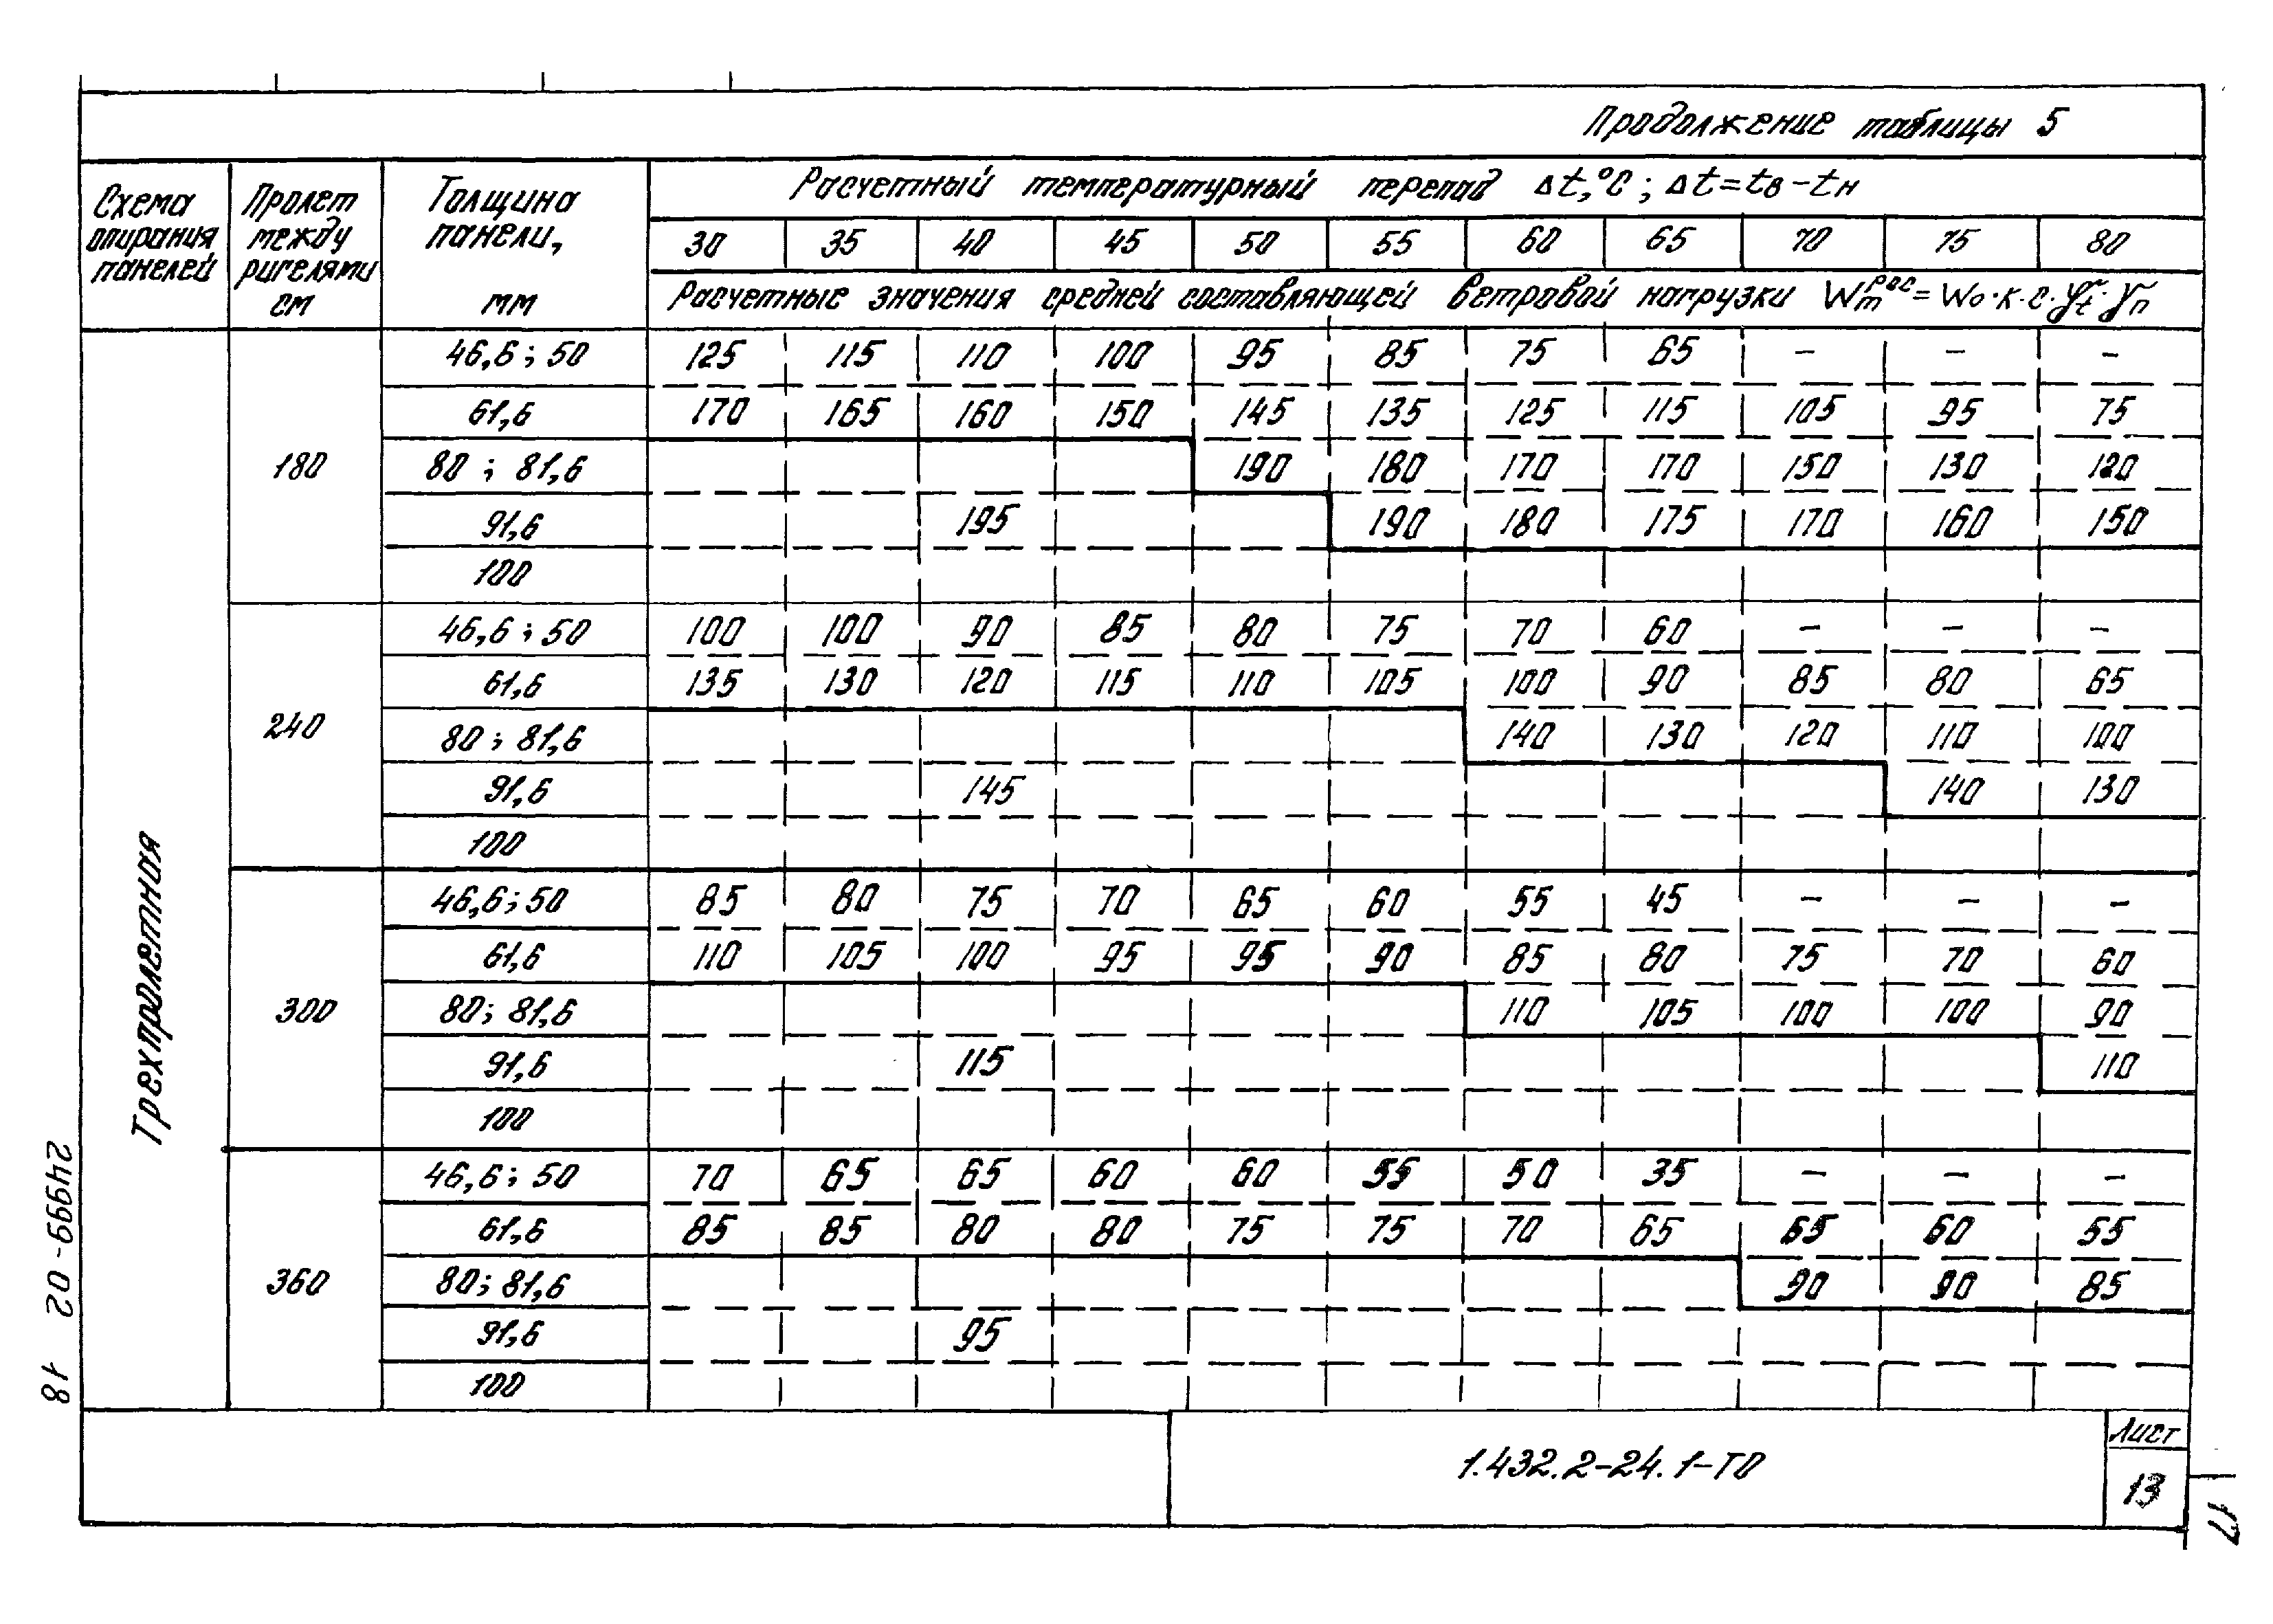 Продолжение таблицы 5
Схема опирания панелей
Пролет между ригелями см
Толщина панели, мм
Расчетный температурный перепад Δt,°C; Δt=tв-tн
30 35 40 45 50 55 60 65 70 75 80
Расчетные значения средней составляющей ветровой нагрузки Wm рас = Wo·к·с·γt·γn
Трехпролетная
180
46,6; 50 125 115 110 100 95 85 75 65 – – –
61,6 170 165 160 150 145 135 125 115 105 95 75
80; 81,6 190 180 170 170 150 130 120
91,6 195 190 180 175 170 160 150
100
240
46,6; 50 100 100 90 85 80 75 70 60 – – –
61,6 135 130 120 115 110 105 100 90 85 80 65
80; 81,6 140 130 120 110 100
91,6 145 140 130
100
300
46,6; 50 85 80 75 70 65 60 55 45 – – –
61,6 110 105 100 95 95 90 85 80 75 70 60
80; 81,6 110 105 100 100 90
91,6 115 110
100
360
46,6; 50 70 65 65 60 60 55 50 35 – – –
61,6 85 85 80 80 75 75 70 65 65 60 55
80; 81,6 90 90 85
91,6 95
100
1.432.2-24.1-ТО
Лист
13
24999-02 18
17